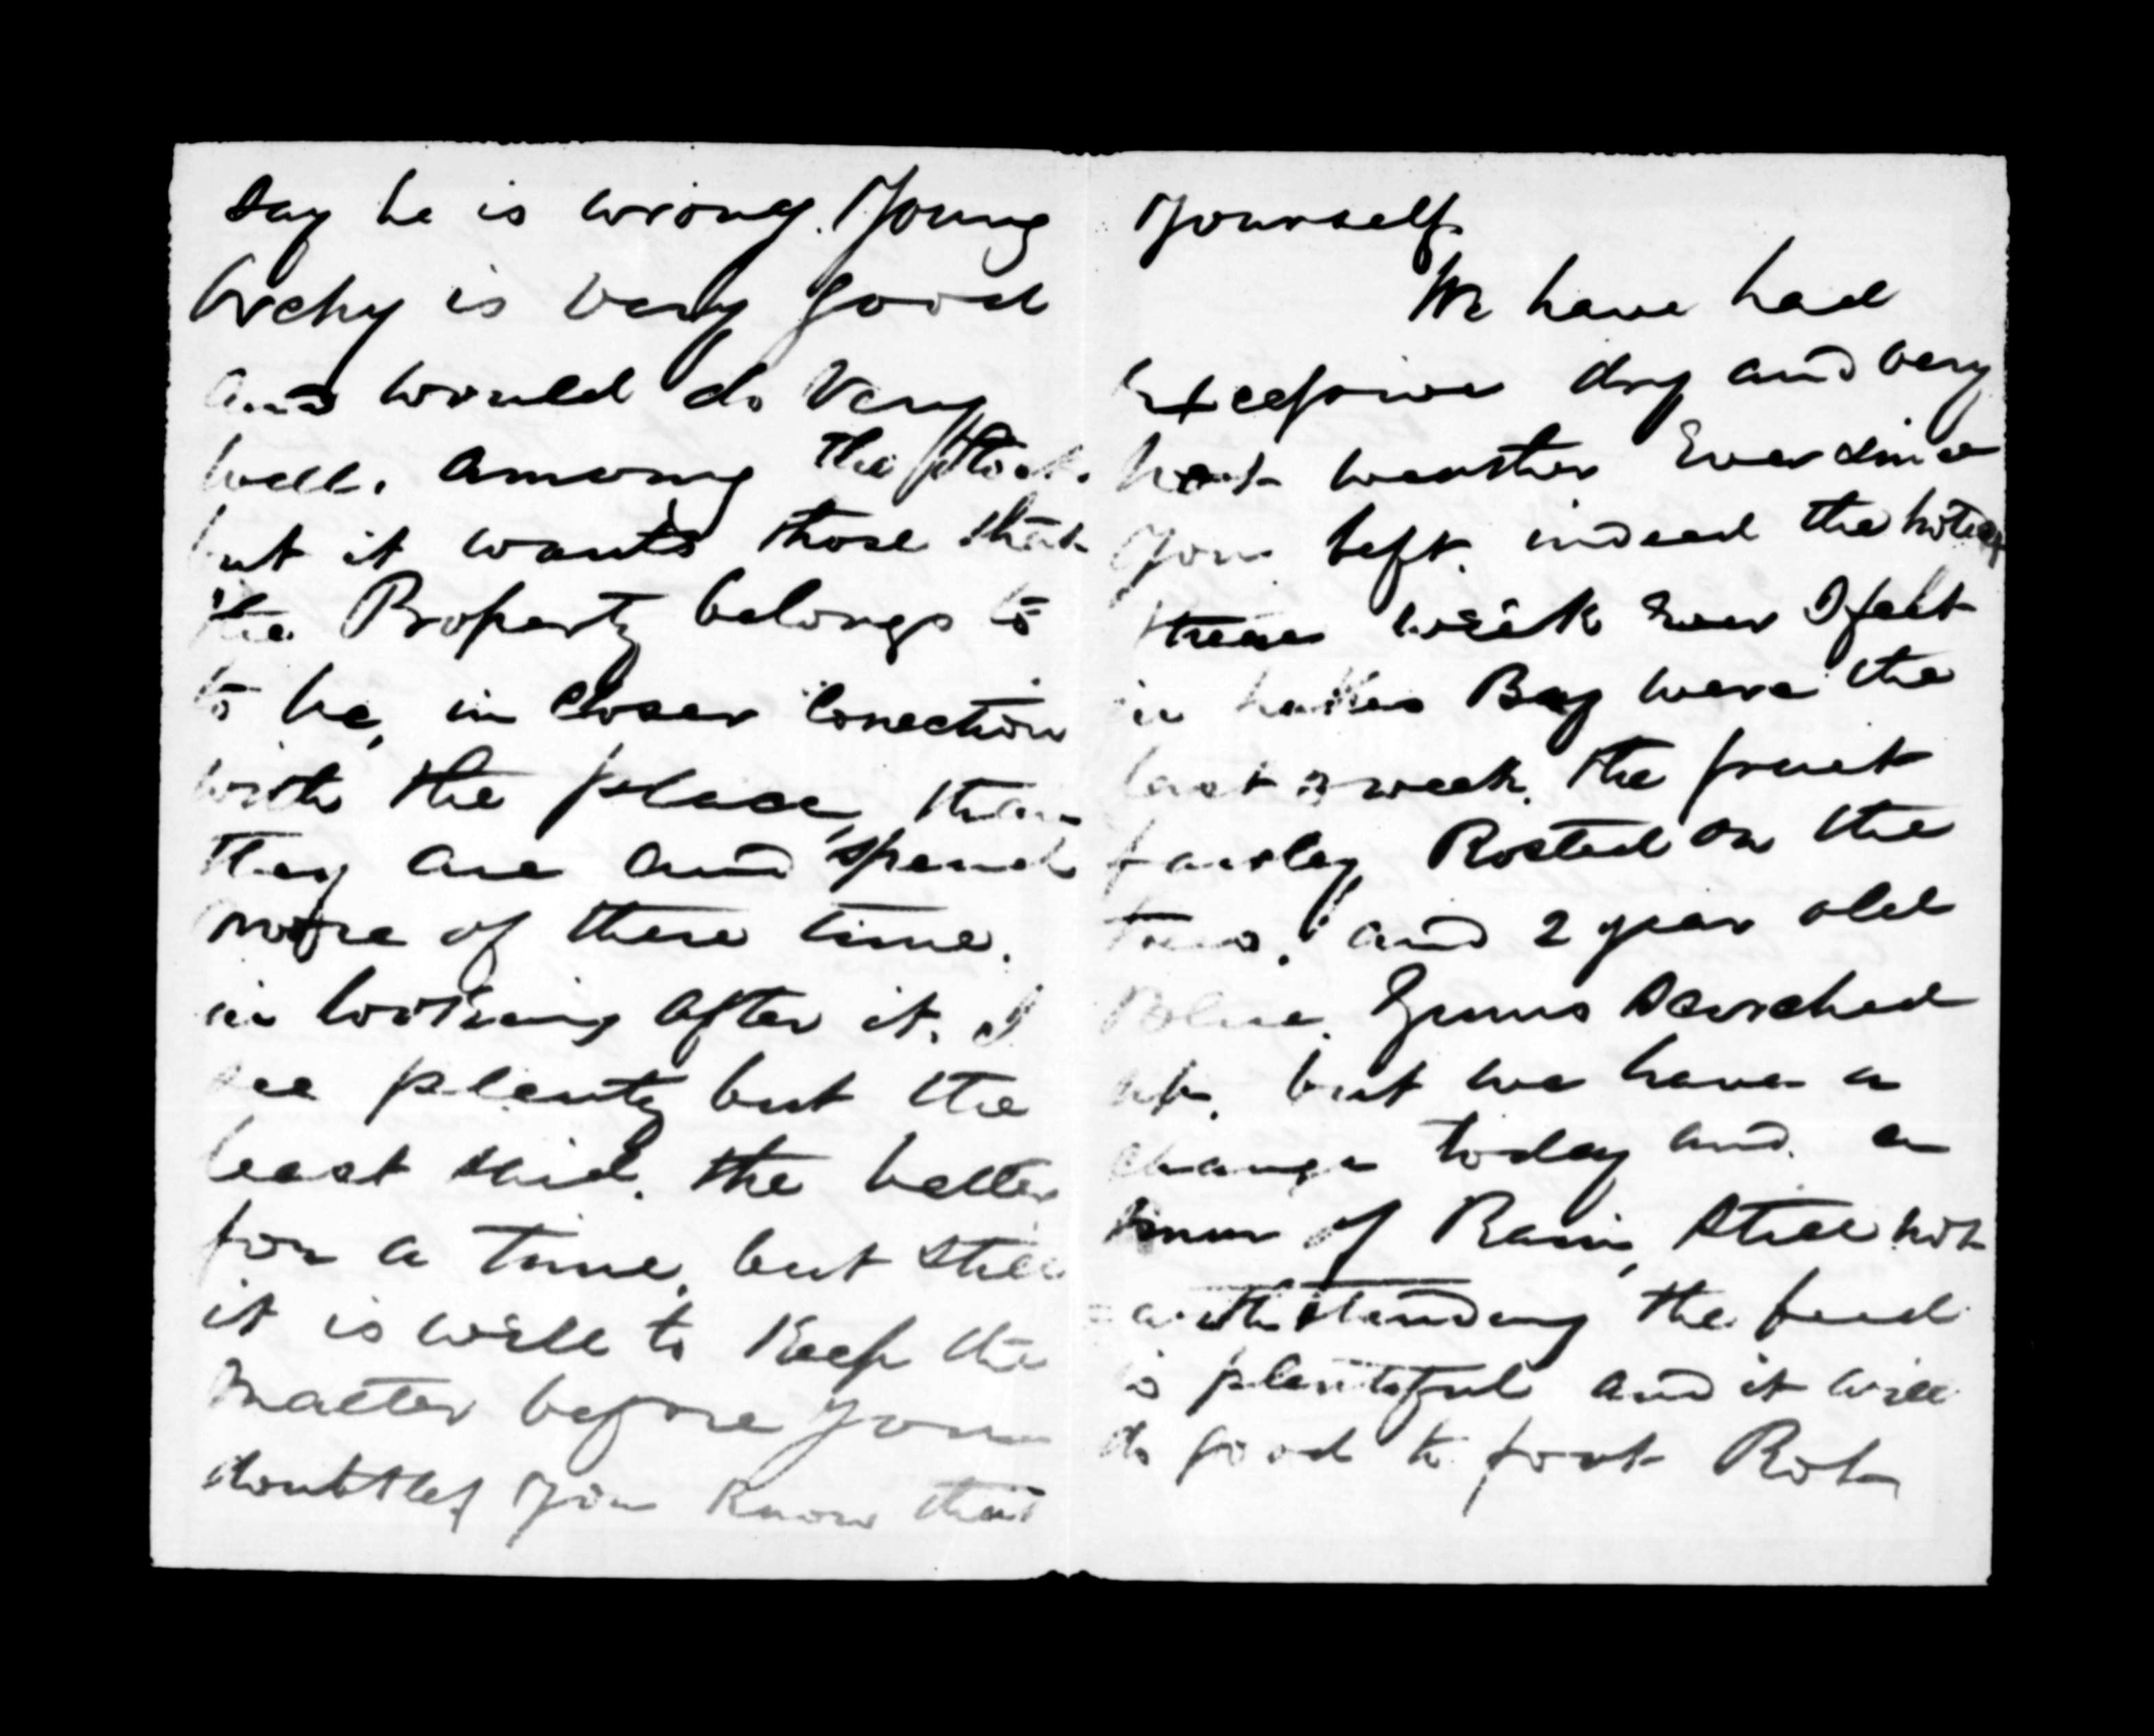 say he is wrong. Young
Archy is very good
and would do very
well. among the stock.
but it wants those that
the Property belongs to
to be, in closer conection
with the place, than
they are and spend
more of there time.
in looking after it. I
see plenty but the
least said. the better
for a time, but still
it is well to Keep the
matter before you
doubtless you Know that
yourself.
We have had
Excessive dry and very
hot weather Ever since
you left. indeed the hotest
three week Ever I felt
in hawkes Bay were the
last 3 week. the fruit
fairley Rosted on the
trees. and 2 year old
Blue Gums Scorched
up. but we have a
change today and a
of Rain, still not
-withstanding the feed
is plentyful and it will
do good to foot Rot